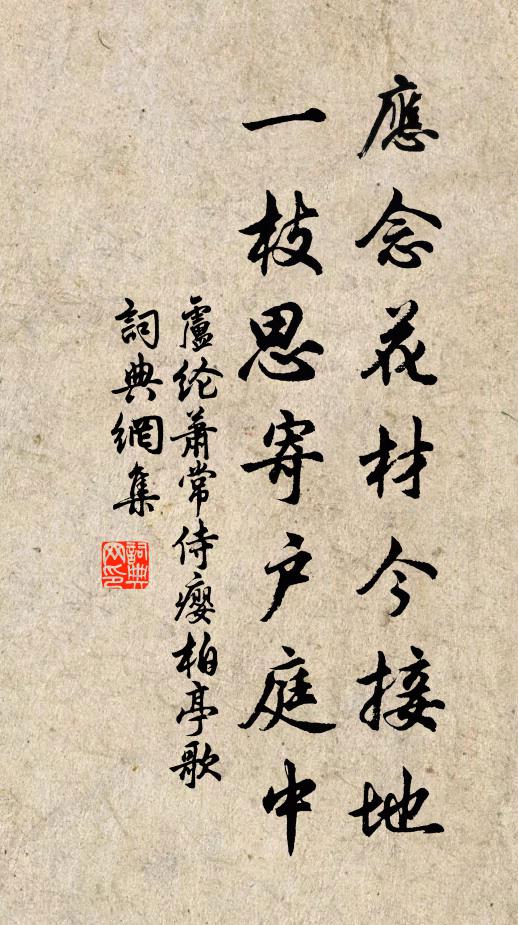 應念花材今接地
一枝思寄户庭中
盧纶萧常侍瘿柏亭歌
詞典網集
詞典
网印